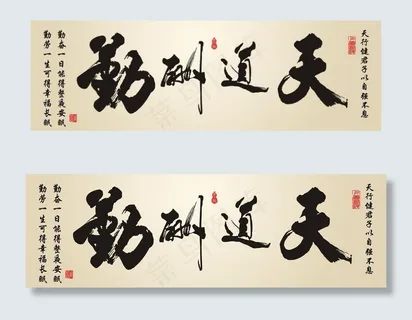 天行健君子以自强不息
天道酬勤
勤奋一日能得整夜安眠
勤劳一生可得幸福长眠
天行健君子以自强不息
天道酬勤
勤奋一日能得整夜安眠
勤劳一生可得幸福长眠